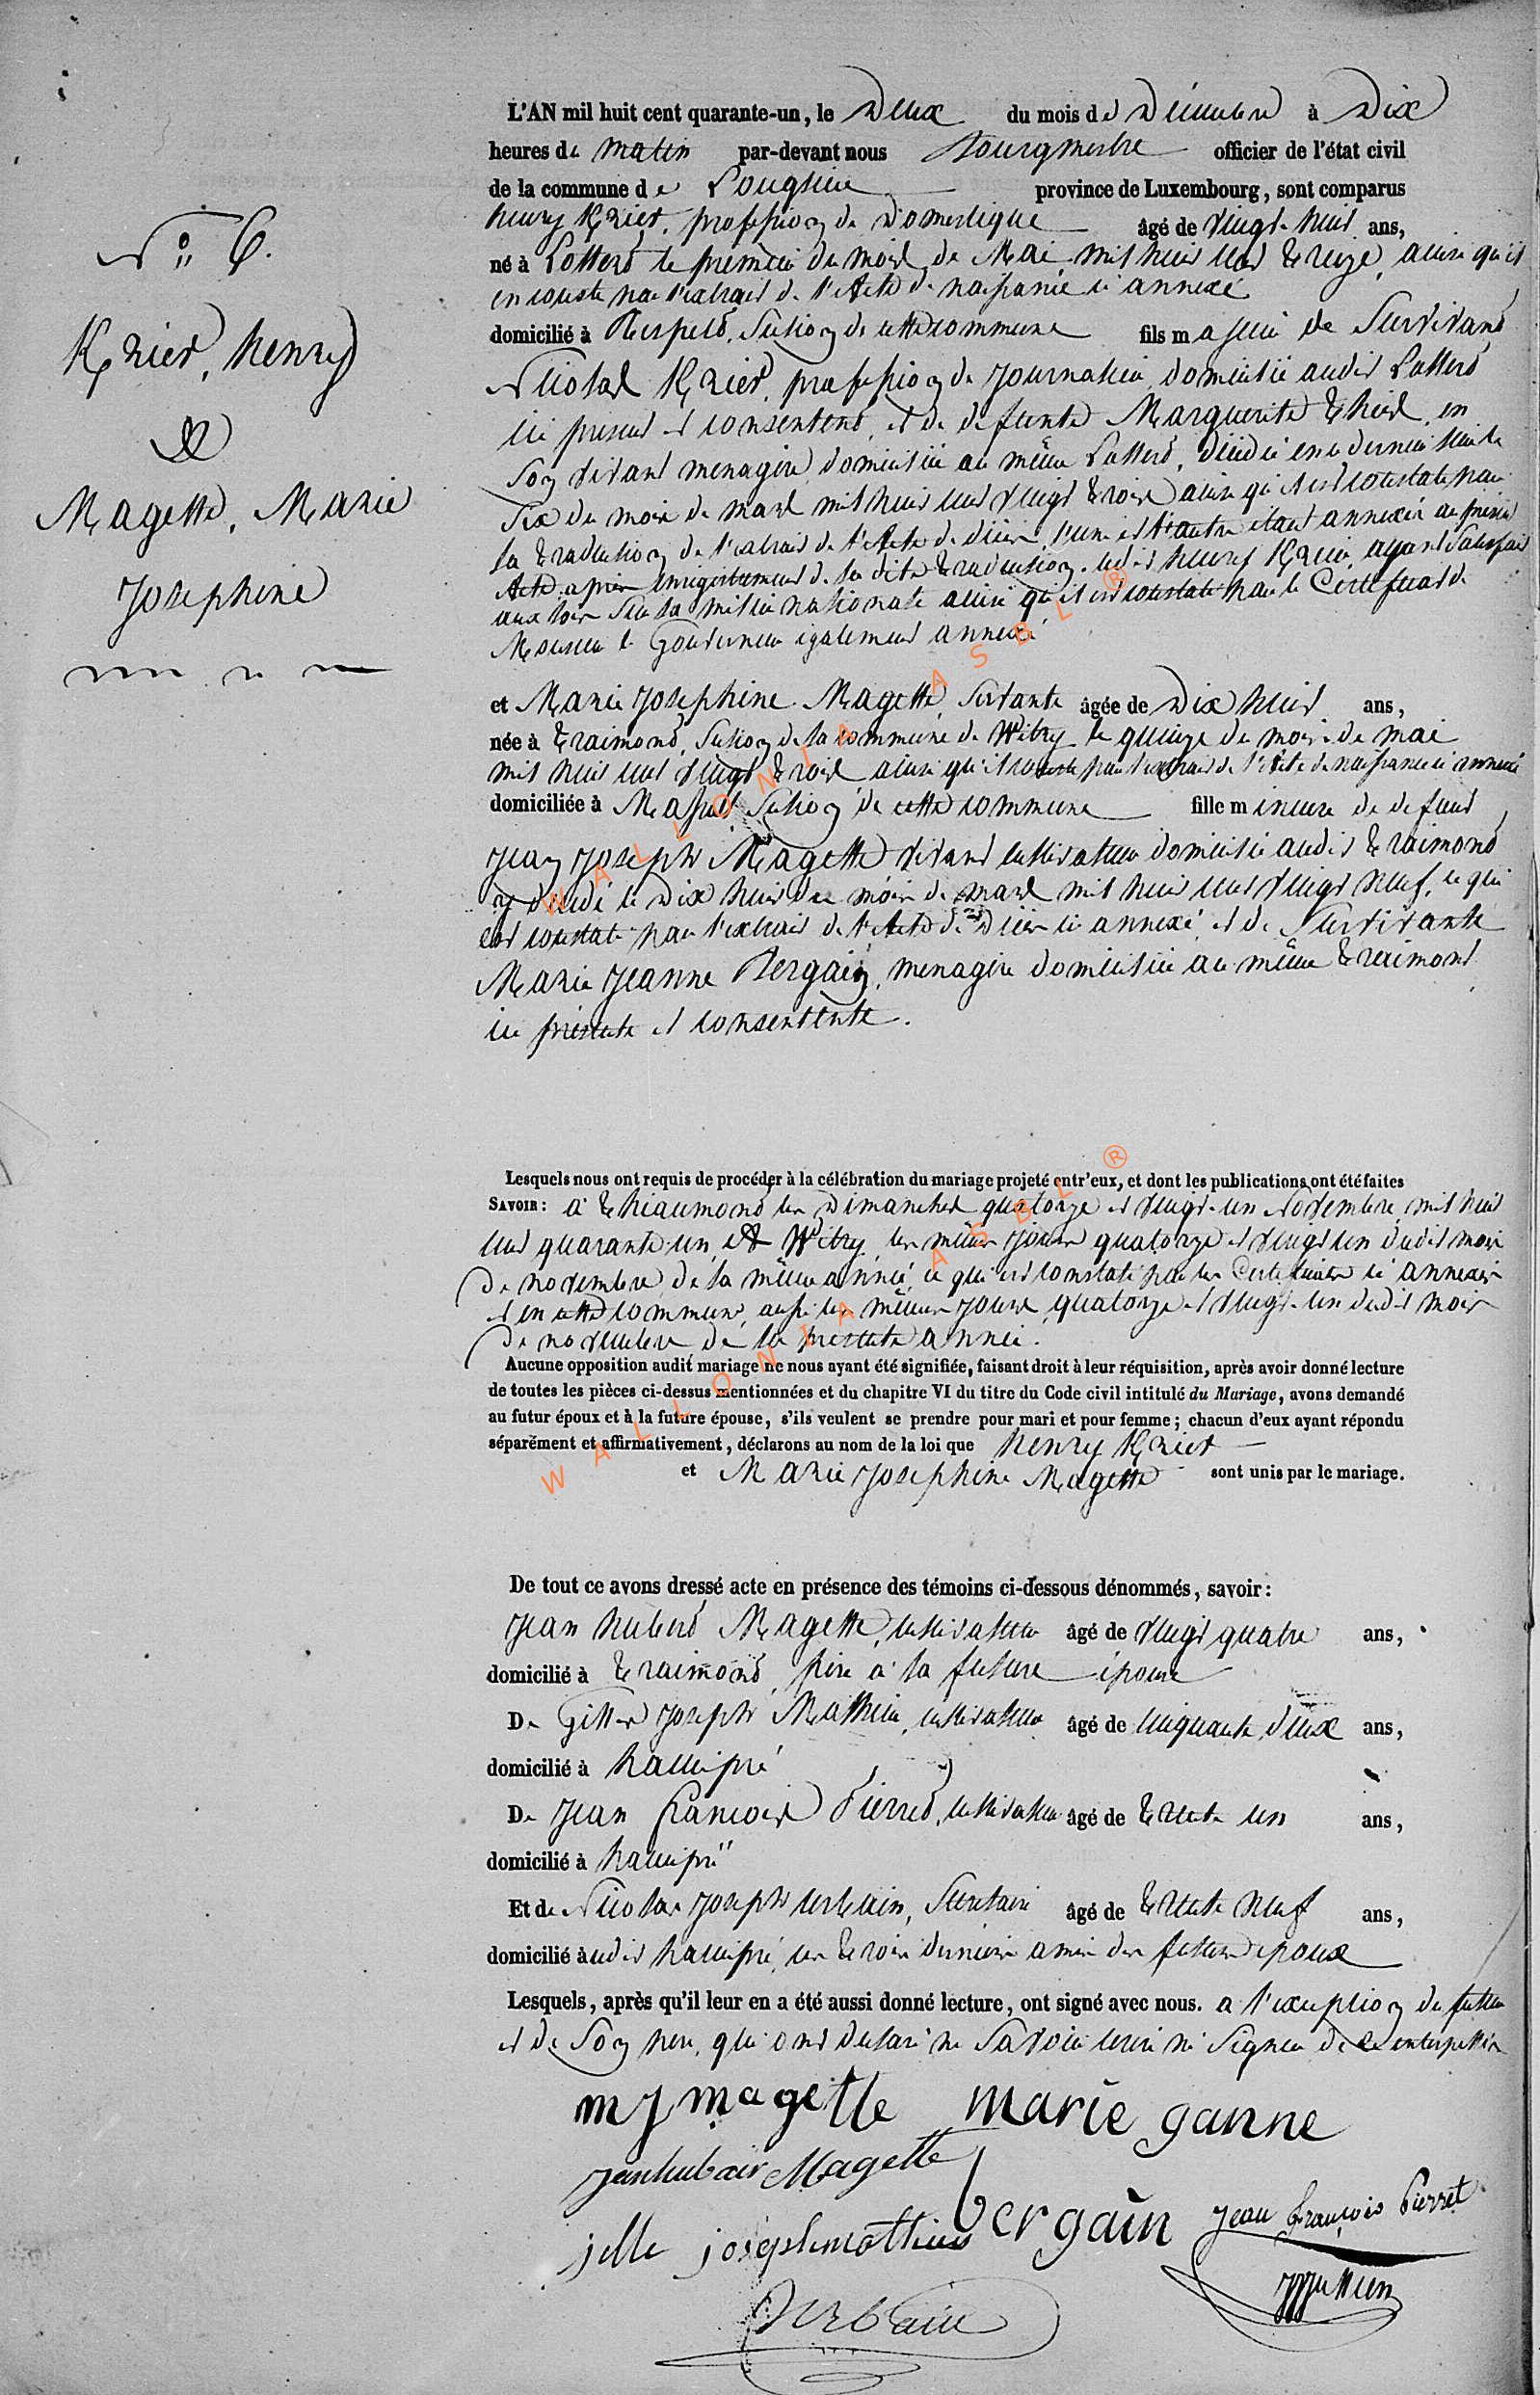 N° 6.
Krier, henry
&
Magette, Marie
Josephine
L'AN mil huit cent quarante-un, le Deux du mois de Décembre à Dix
heures du matin par-devant nous Bourgmestre officier de l'état civil
de la commune de Louglier province de Luxembourg, sont comparus
henry Krier, profession de Domestique âgé de vingt-huit ans,
né à Lottert le premier du mois de Mai mil huit cent treize, ainsi qu'il
en conste par l'extrait de l'Acte de naissance ci annexé
domicilié à Respelt, Section de cette commune fils majeur de Survivant
Nicolas Krier, profession de Journalier, domicilié audit Lottert
ici present et consentent, et de defunte Marguerite Thiel, en
Son vivant menagère, domiciliée au même Lottert, décédée en ce dernier lieu le
Six du mois de mars mil huit cent vingt trois ainsi qu'il est constaté par
la traduction de l'extrait de l'Acte de décès, l'une et l'autre étant annexés au présent
Acte après enregistrement de la dite traduction. ledit henry Krier, ayant Satisfait
aux lois Sur la milice nationale ainsi qu'il est constaté par le Certificat de
Monsieur le Gouverneur également annexé
et Marie Josephine Magette, Servante âgée de Dix huit ans,
née à traimont, Section de la commune de Witry le quinze du mois de mai
mil huit cent vingt trois ainsi qu'il conste par l'extrait de l'Acte de naissance ci annexé
domiciliée à Massul Section de cette commune fille mineure de defunt
Jean Joseph Magette vivant cultivateur domicilié audit traimont
y décédé le Dix huit du mois de mars mil huit cent vingt neuf, ce qui
est constaté par l'extrait de l'Acte de Décès ci annexé, et de Survivante
Marie Jeanne Bergain, menagère domiciliée au même traimont
ici présente et consentente.
Lesquels nous ont requis de procéder à la célébration du mariage projeté entr'eux, et dont les publications ont été faites
SAVOIR: à thiaumont les Dimanches quatorze et vingt-un Novembre mil huit
cent quarante un, à Witry, les mêmes jours quatorze et vingt un dudit mois
de novembre de la même année, ce qui est constaté par les Certificats ci annexés
et en cette commune, aussi les mêmes jours, quatorze et vingt-un dudit mois
de novembre de la présente année.
Aucune opposition audit mariage ne nous ayant été signifiée, faisant droit à leur réquisition, après avoir donné lecture
de toutes les pièces ci-dessus mentionnées et du chapitre VI du titre du Code civil intitulé du Mariage, avons demandé
au futur époux et à la future épouse, s'ils veulent se prendre pour mari et pour femme; chacun d'eux ayant répondu
séparément et affirmativement, déclarons au nom de la loi que henry Krier
et Marie Josephine Magette sont unis par le mariage.
De tout ce avons dressé acte en présence des témoins ci-dessous dénommés, savoir:
Jean hubert Magette, cultivateur âgé de vingt quatre ans,
domicilié à traimont, frère à la future épouse
De Gilles Joseph Mathieu, cultivateur âgé de cinquante deux ans,
domicilié à hamipré
De Jean françois Pierret, cultivateur âgé de trente un ans,
domicilié à hamipré
Et de Nicolas Joseph Urbain, Secretaire âgé de trente neuf ans,
domicilié audit hamipré, les trois derniers amis des futurs époux
Lesquels, après qu'il leur en a été aussi donné lecture, ont signé avec nous. a l'exception du futur
et de Son père, qui ont declaré ne Savoir écrire ni Signer de ce interpellés
m J magette marie ganne
Jean hubair Magette
bergain Jean françois Pierret
jille joseph mathieu
Urbain
WALLONIA ASBL ®
WALLONIA ASBL ®